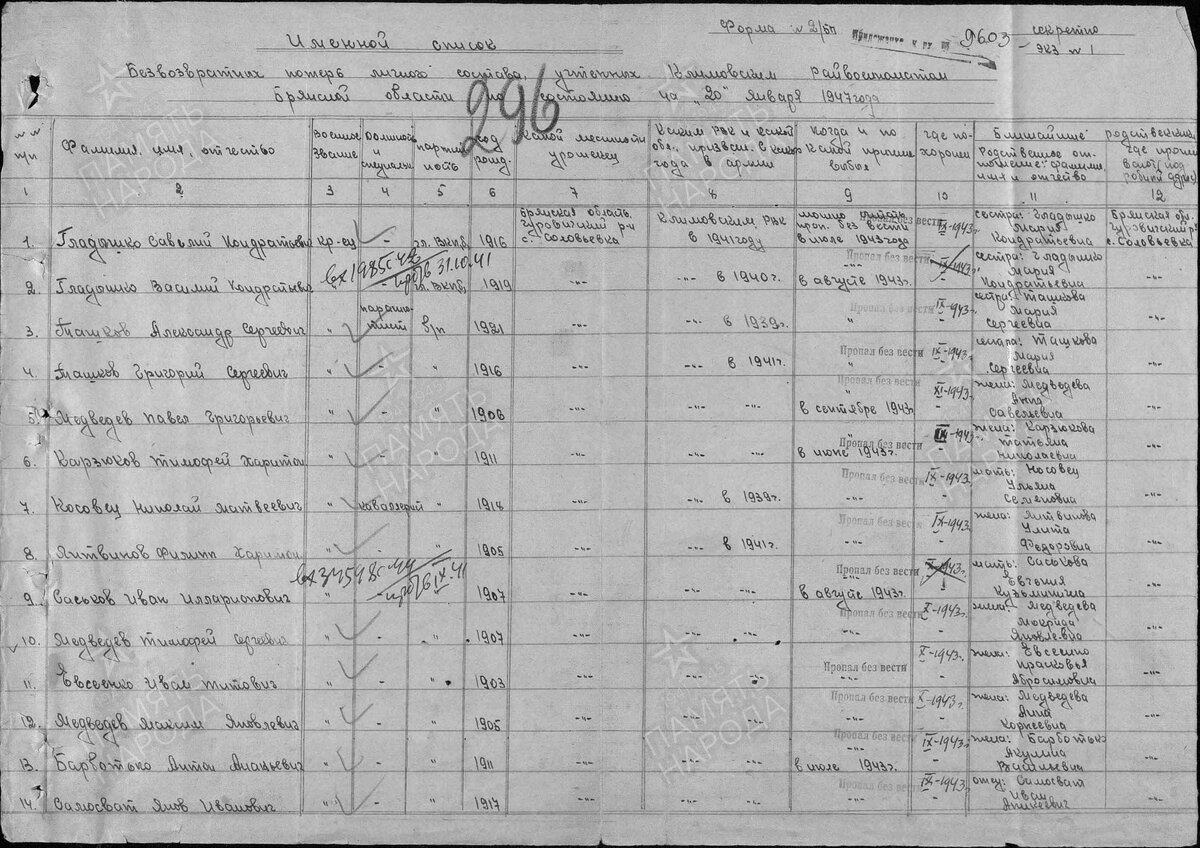 Форма № 2/БП
Приложение к вх. №
9603
секретно
экз № 1
Именной список
Безвозвратных потерь личного состава, учтенных Климовским Райвоенкоматом
Брянской области по состоянию на „20" января 1947 года
296
№№ п/п | Фамилия, имя, отчество | Военное звание | Должность и специальн. | партийность | год рожд. | Какой местности уроженец | Каким РВК и какой обл. призван. С какого года в армии | Когда и по какой причине выбыл | где похоронен | Ближайшие родственники
Родственное отношение, фамилия, имя и отчество | где прожив. (подробный адрес)
1 | 2 | 3 | 4 | 5 | 6 | 7 | 8 | 9 | 10 | 11 | 12
1. | Гладышко Савелий Кондратьевич | кр-ец | - | чл. ВКПб | 1916 | Брянская область, Чуровичский р-н с. Соловьевка | Климовским РВК в 1941 году | можно считать проп. без вести в июле 1943 года | IX-1943г. | сестра: Гладышко Мария Кондратьевна | Брянская обл Чуровичский р-н с. Соловьевка
вх 1985с
проп б 31.10.41
2. | Гладышко Василий Кондратьевич | чл. ВКПб | 1919 | -"- | -"- в 1940г. | Пропал без вести в августе 1943г. | IX-1943г. | сестра: Гладышко Мария Кондратьевна | -"-
3. | Ташков Александр Сергеевич | " | б/п | 1921 | -"- | -"- в 1939г. | Пропал без вести " | IX-1943г. | сестра: Ташкова Мария Сергеевна | -"-
4. | Ташков Григорий Сергеевич | " | - | " | 1916 | -"- | -"- в 1941г. | Пропал без вести " | IX-1943г. | Ташкова Мария Сергеевна | -"-
5. | Медведев Павел Григорьевич | " | - | " | 1906 | -"- | -"- -"- | Пропал без вести в сентябре 1943г. | XI-1943г. | жена: Медведева Анна Савельевна | -"-
6. | Карзюков Тимофей Харитон | " | - | " | 1911 | -"- | -"- -"- | Пропал без вести в июне 1943г. | IX-1943г. | жена: Карзюкова Татьяна Николаевна | -"-
7. | Косовец Николай Матвеевич | " | кавалерий | " | 1918 | -"- | -"- в 1939г. | Пропал без вести -"- | IX-1943г. | мать: Носовец Ульяна Семеновна | -"-
8. | Литвинов Филипп Харитон | " | - | " | 1905 | -"- | -"- в 1941г. | Пропал без вести -"- | IX-1943г. | жена: Литвинова Улита Федоровна | -"-
вх 34598с
проп б IX.41
9. | Саськов Иван Илларионович | " | 1907 | -"- | -"- -"- | Пропал без вести в августе 1943г. | X-1943г. | мать: Саськова Евгения Кузьминична | -"-
10. | Медведев Тимофей Сергеевич | " | - | " | 1907 | -"- | -"- -"- | Пропал без вести -"- | X-1943г. | жена: Медведева Мокрида Яковлевна | -"-
11. | Евсеенко Иван Титович | " | - | " | 1903 | -"- | -"- -"- | Пропал без вести -"- | X-1943г. | жена: Евсеенко Прасковья Абросимовна | -"-
12. | Медведев Максим Яковлевич | " | - | " | 1905 | -"- | -"- -"- | Пропал без вести -"- | X-1943г. | жена: Медведева Анна Корнеевна | -"-
13. | Барвотько Антон | " | - | " | 1911 | -"- | -"- -"- | Пропал без вести в июле 1943г. | IX-1943г. | жена: Барботько Акулина Васильевна | -"-
14. | Самосват Яков Иванович | " | - | " | 1917 | -"- | -"- -"- | Пропал без вести -"- | IX-1943г. | отец: Самосват Иван Аникеевич | -"-
ПАМЯТЬ НАРОДА